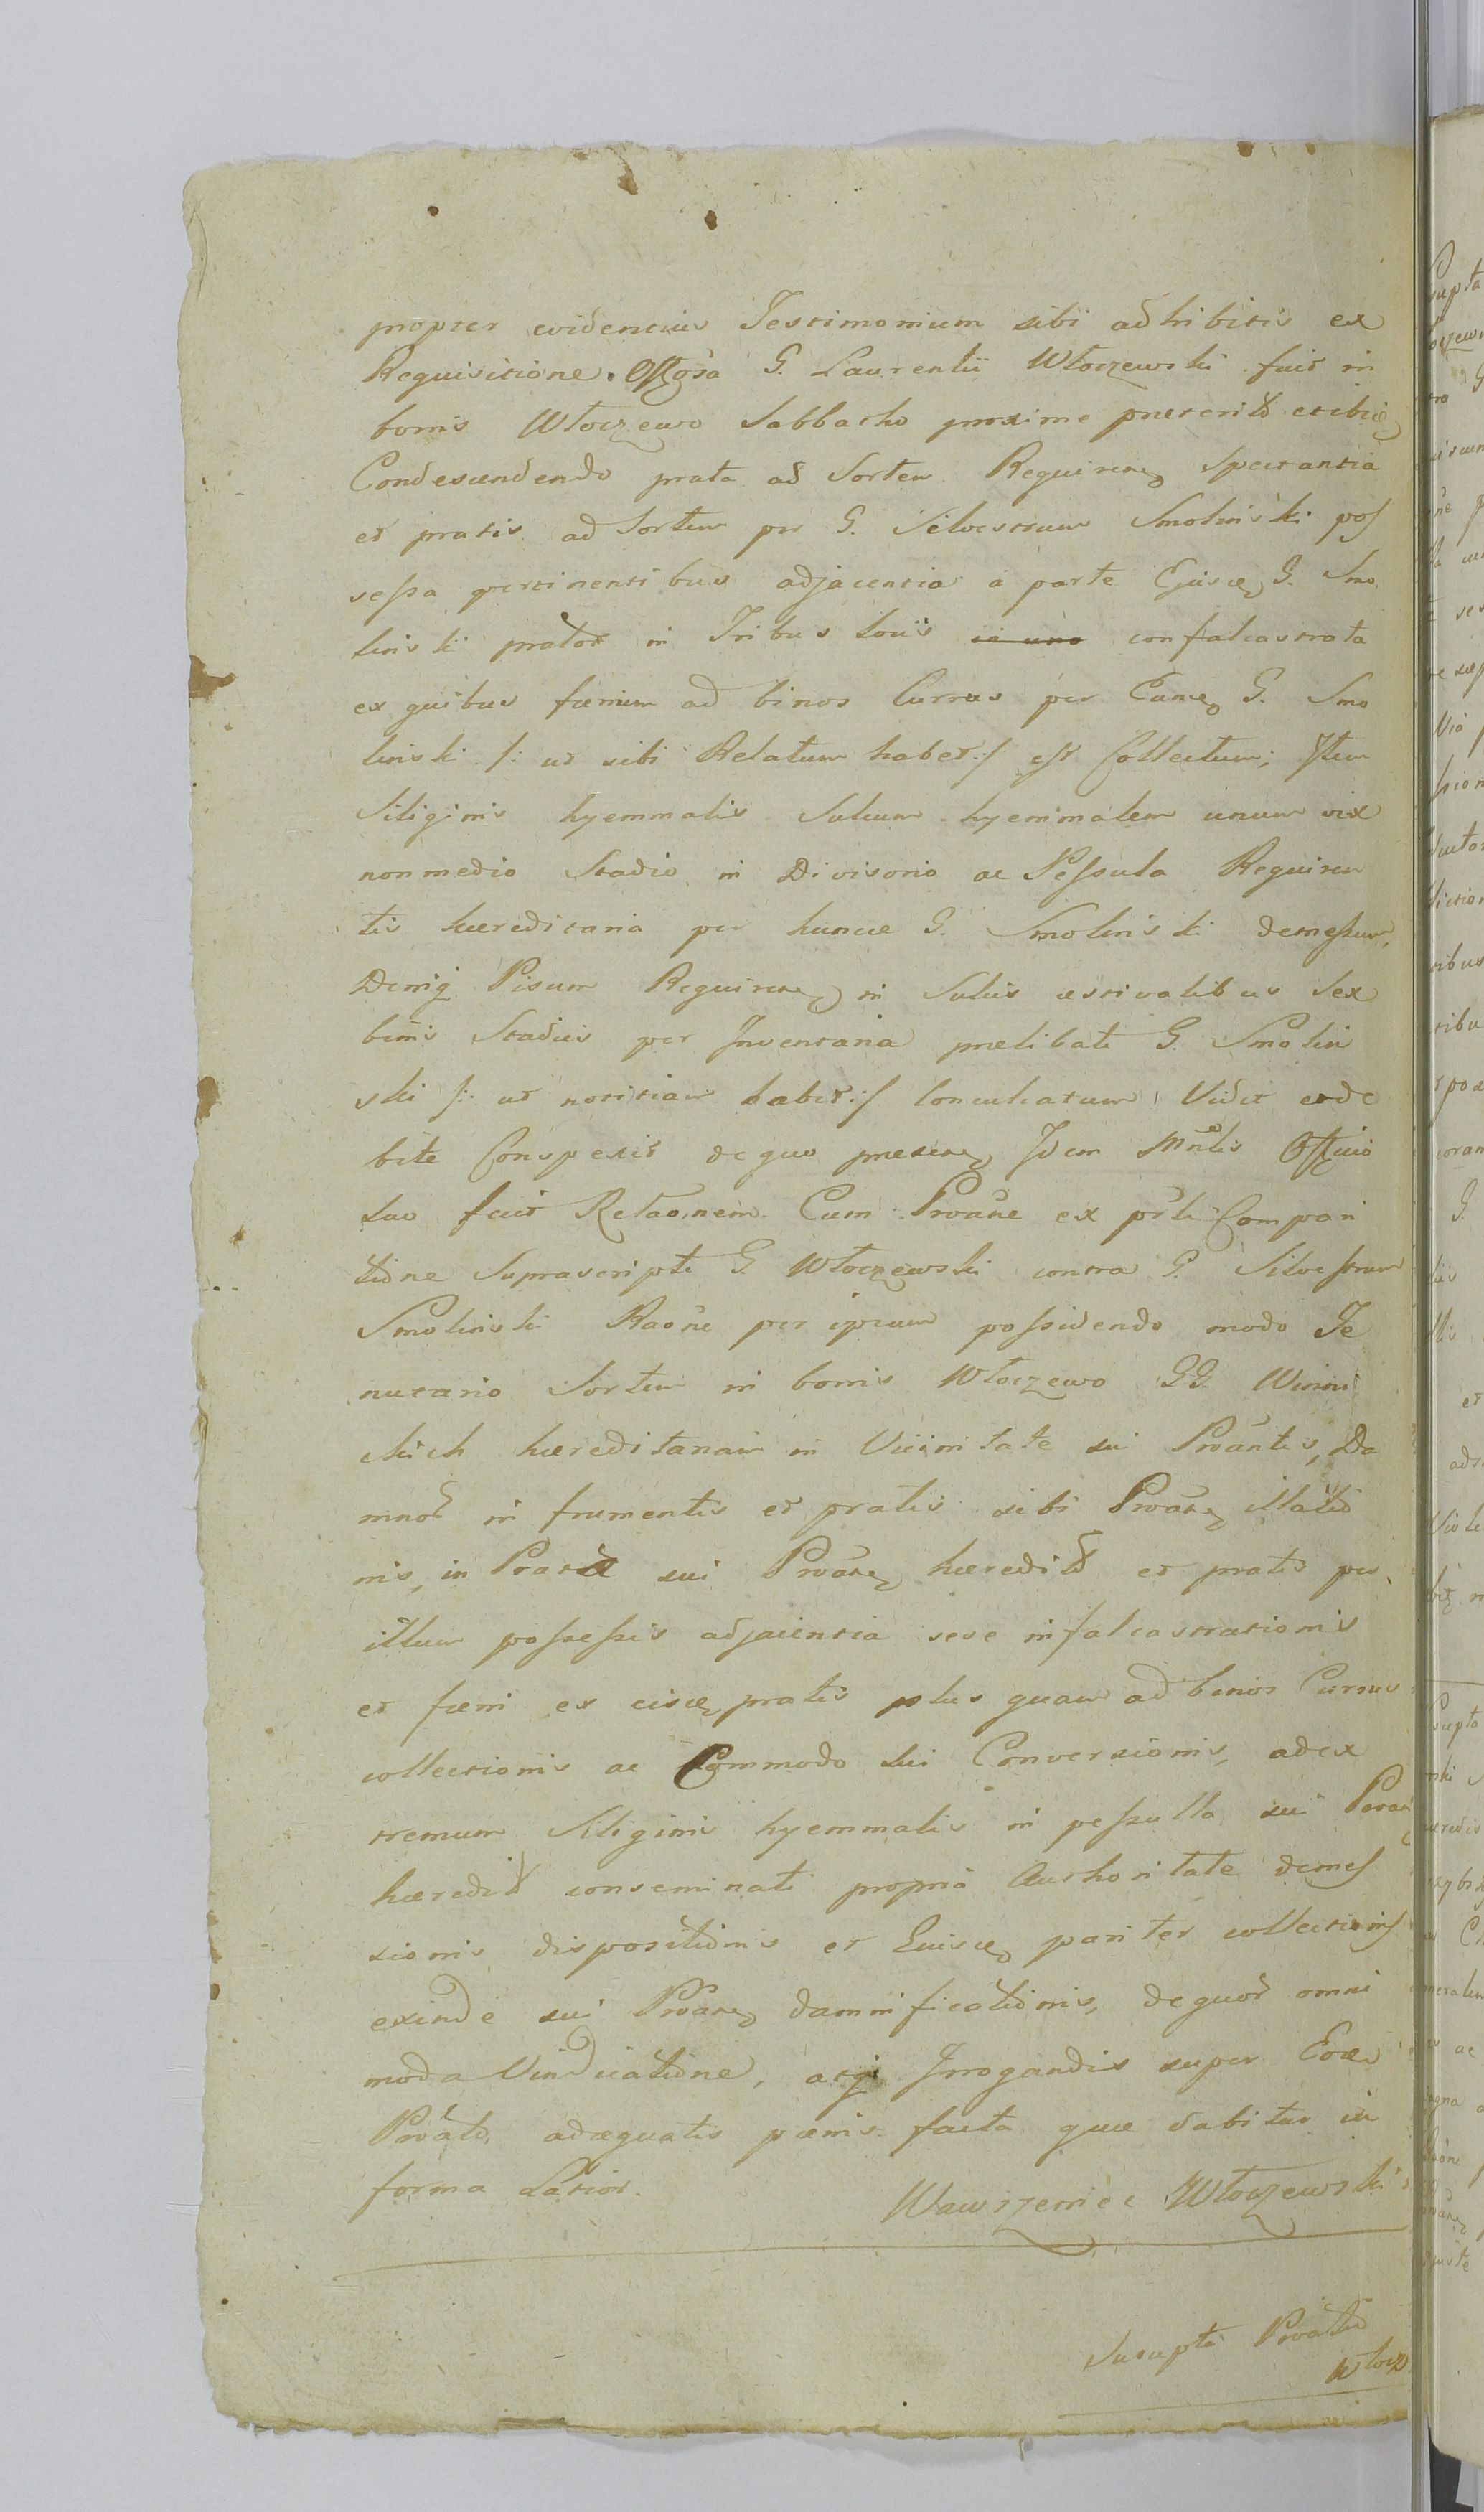 propter evidentius Testimonium sibi adhibitis ex
Requisitione Offosa G. Laurentii Włoczewski fuit in
bonis Włoczewo Sabbatho proxime præterito et ibiq
Condescendendo prata ad Sortem Requirenz spectantia
et pratis ad Sortem per G. Silvestrum Smoliński pos
sessa pertinentibus adjacentia a parte Ejusq G. Smo
liński prator in Tribus Locis in uno confalcastrata
ex quibus fænum ad binos Currus per Eumq G. Smo
liński /: ut sibi Relatum habet :/ est Collectum; Item
Siliginis hyemmalis Sulcum hyemmalem unum vix
non medio Stadio in Divisorio ac Pessula Requiren
tis hæreditaria per huncce G. Smoliński demessum,
Deniq Pisum Requirenz in Sulcis æstivalibus Sex
binis Stadiis per Inventaria prælibati G. Smoliń
ski /: ut notitiam habet :/ Conculcatum Vidit et de
bite Conspexit de quo præmz Idem Mnlis Officio
suo fecit Relaonem. Cum Proane ex prli Compari
tione Suprascripti G. Włoczewski contra G. Silvestrum
Smoliński Raone per ipsum possidendo modo Te
nutario Sortem in bonis Włoczewo GG. Winni
ckich hæreditariam in Vicinitate sui Proantis, Da
mnor in frumentis et pratis sibi Proanz illatio
nis, in Prata sui Proanz hæredit et pratis per
illum possessis adjacentia sese infalcastrationis
et fæni ex eisq pratis plus quam ad binos Currus
collectionis ac Commodo sui Conversionis, ad ex
tremum Siliginis hyemmalis in pessulla sui Proanz
hæredit conseminati propria Authoritate demes
sionis dispositionis et Ejusq pariter collectionis
exinde sui Proanz damnificationis, de quor omni
moda Vindicatione, atq Irrogandis super Eoq
Proato adæquatis pænis facta quæ dabitur in
forma Latior.
Wawrzeniec Włoczewski
Suscepta Proatio
Włocz